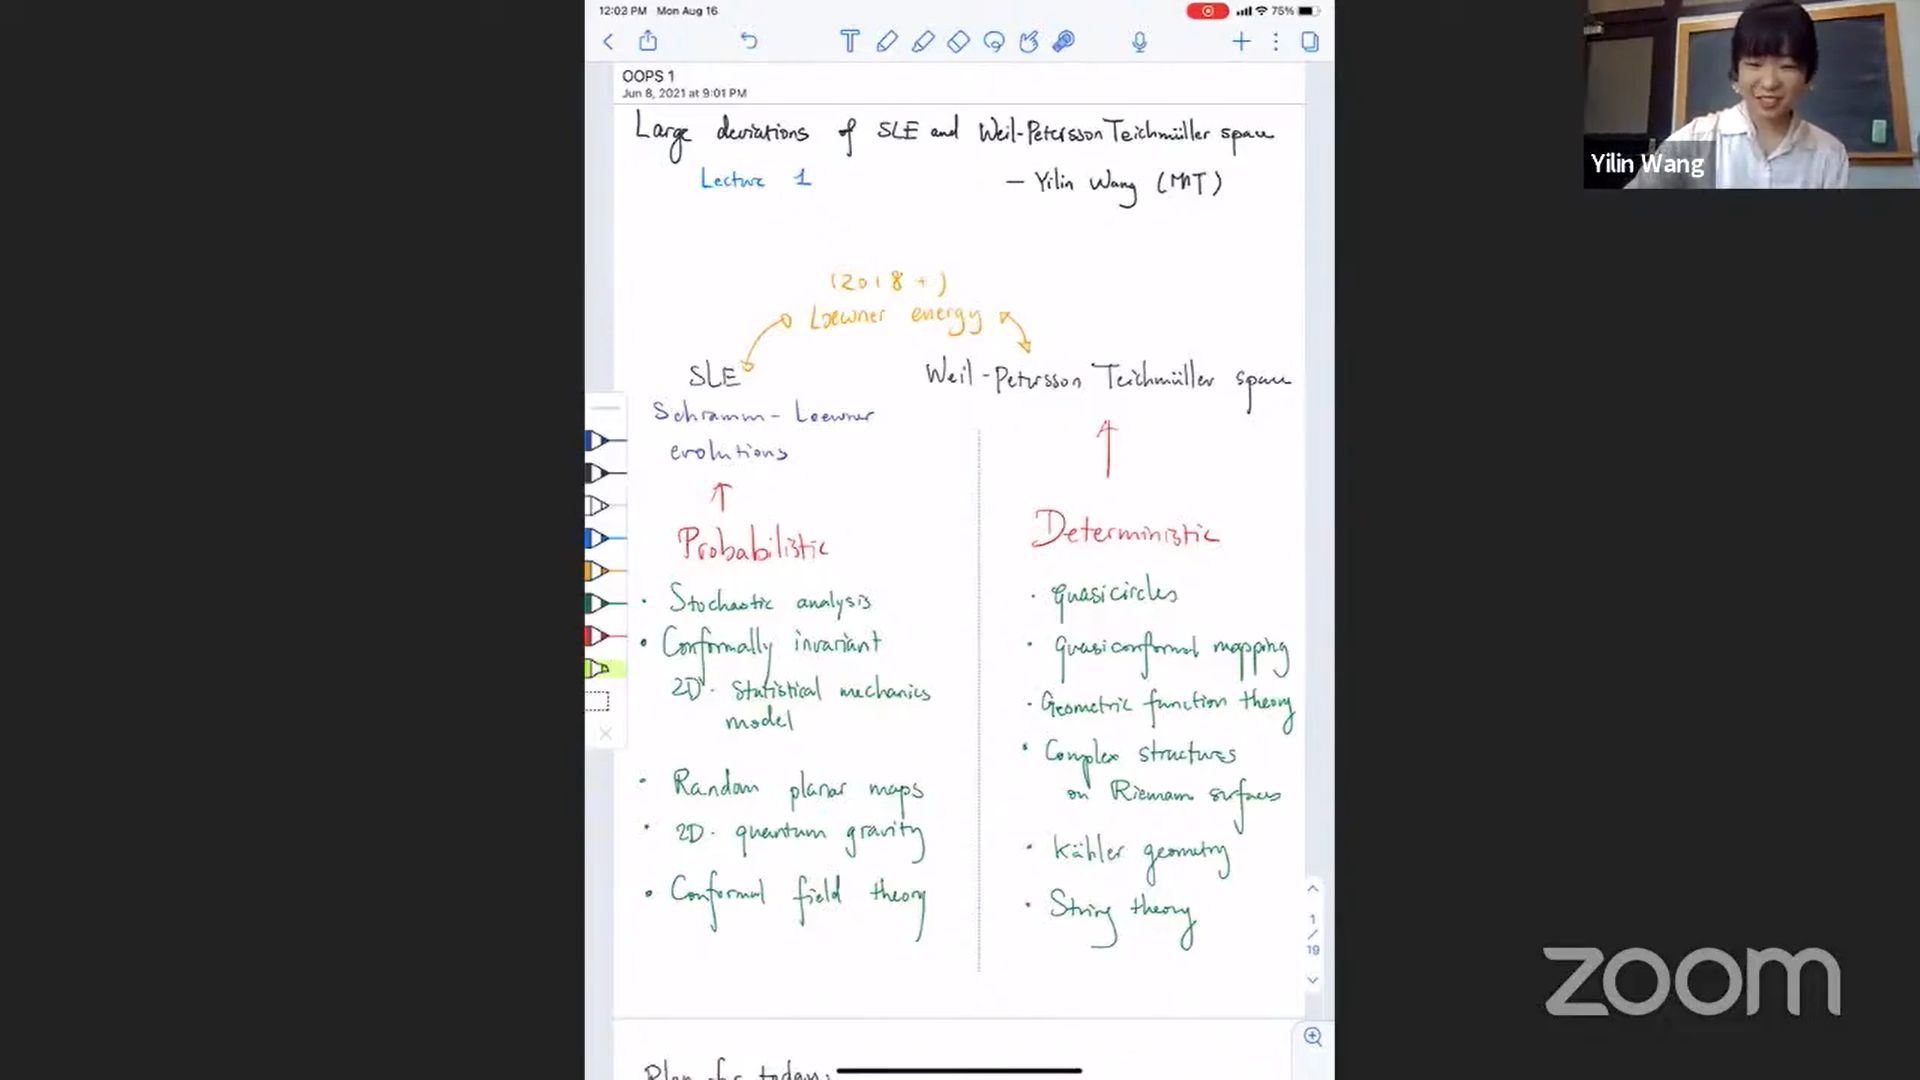 12:02 PM Mon Aug 16
75%
OOPS 1
Jun 8, 2021 at 9:01 PM
Large deviations of SLE and Weil-Petersson Teichmüller space
Lecture 1
— Yilin Wang (MIT)
(2018 +)
Loewner energy
SLE
Weil-Petersson Teichmüller space
Schramm-Loewner
evolutions
Probabilistic
Deterministic
· Stochastic analysis
· Conformally invariant
2D. Statistical mechanics
model
· Random planar maps
· 2D. quantum gravity
· Conformal field theory
· quasicircles
· quasiconformal mapping
· Geometric function theory
· Complex structures
on Riemann surfaces
· Kähler geometry
· String theory
1
/
19
Plan for today:
Yilin Wang
zoom